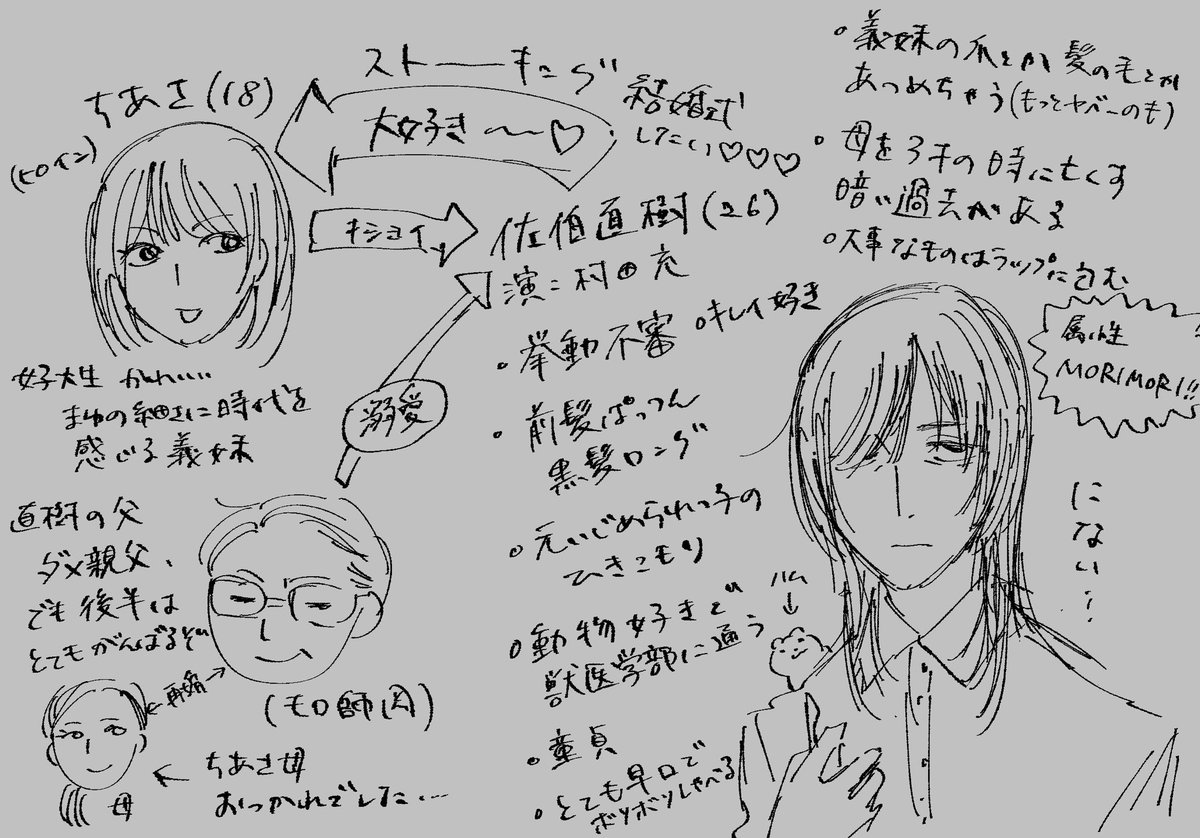 ちあき(18)
(ヒロイン)
ストーキング
大好き〜♡
結婚式
したい♡♡♡
キショイ
佐伯直樹(26)
演:村田充
溺愛
女子大生 かわいい
まゆの細さに時代を
感じる義妹
直樹の父
ダメ親父、
でも後半は
とてもがんばるぞ
(モロ師岡)
再婚
母
ちあき母
おつかれでした…
・挙動不審
・キレイ好き
・前髪ぱっつん
黒髪ロング
・元いじめられっ子の
ひきこもり
・動物好きで
獣医学部に通う
・童貞
・とても早口で
ボソボソしゃべる
・義妹の爪とか髪の毛とか
あつめちゃう(もっとヤバーのも)
・母を3才の時に亡くす
暗い過去がある
・大事なものはラップに包む
属性
MORIMORI!!
にない…
ハム